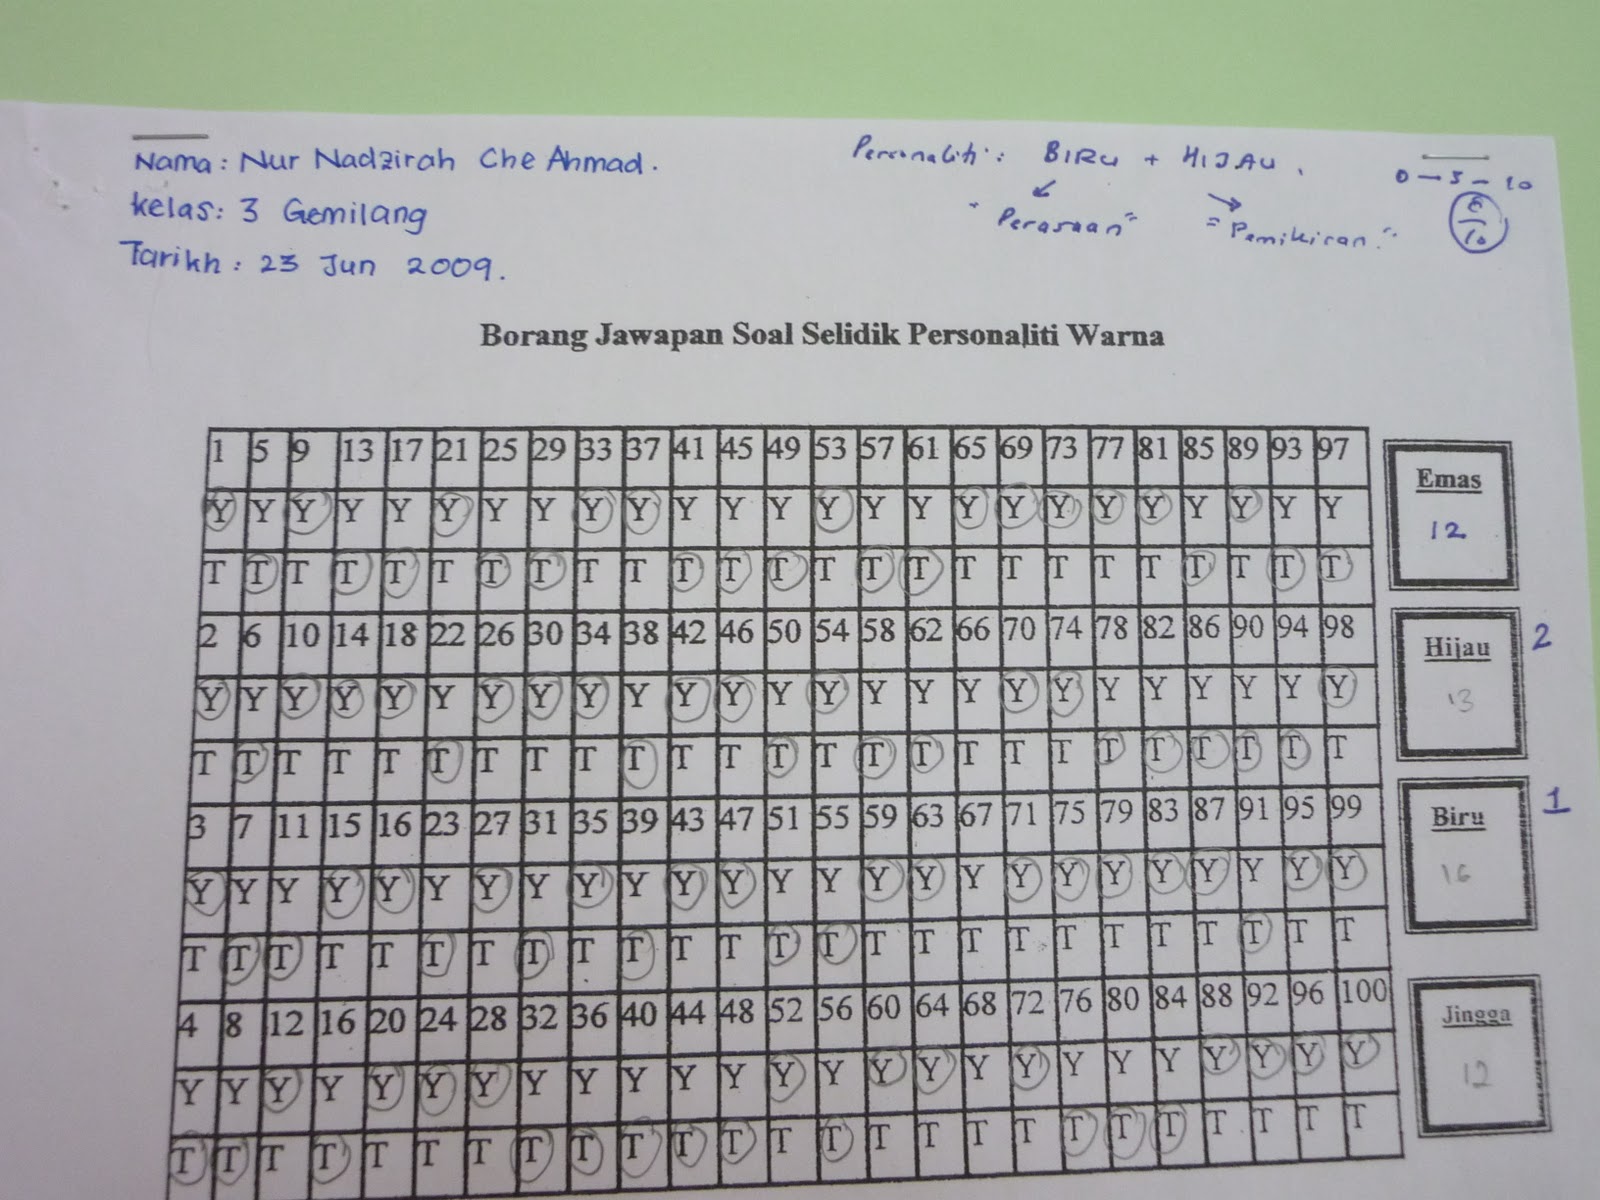 Nama: Nur Nadzirah Che Ahmad.
Kelas: 3 Gemilang
Tarikh: 23 Jun 2009.
Personaliti: BIRU + HIJAU.
"Perasaan" "Pemikiran"
0 - 5 - 10
10
Borang Jawapan Soal Selidik Personaliti Warna
1 5 9 13 17 21 25 29 33 37 41 45 49 53 57 61 65 69 73 77 81 85 89 93 97
Y Y Y Y Y Y Y Y Y Y Y Y Y Y Y Y Y Y Y Y Y Y Y Y Y
T T T T T T T T T T T T T T T T T T T T T T T T T
Emas
12
2 6 10 14 18 22 26 30 34 38 42 46 50 54 58 62 66 70 74 78 82 86 90 94 98
Y Y Y Y Y Y Y Y Y Y Y Y Y Y Y Y Y Y Y Y Y Y Y Y Y
T T T T T T T T T T T T T T T T T T T T T T T T T
Hijau
13
2
3 7 11 15 16 23 27 31 35 39 43 47 51 55 59 63 67 71 75 79 83 87 91 95 99
Y Y Y Y Y Y Y Y Y Y Y Y Y Y Y Y Y Y Y Y Y Y Y Y Y
T T T T T T T T T T T T T T T T T T T T T T T T T
Biru
16
1
4 8 12 16 20 24 28 32 36 40 44 48 52 56 60 64 68 72 76 80 84 88 92 96 100
Y Y Y Y Y Y Y Y Y Y Y Y Y Y Y Y Y Y Y Y Y Y Y Y Y
T T T T T T T T T T T T T T T T T T T T T T T T T
Jingga
12